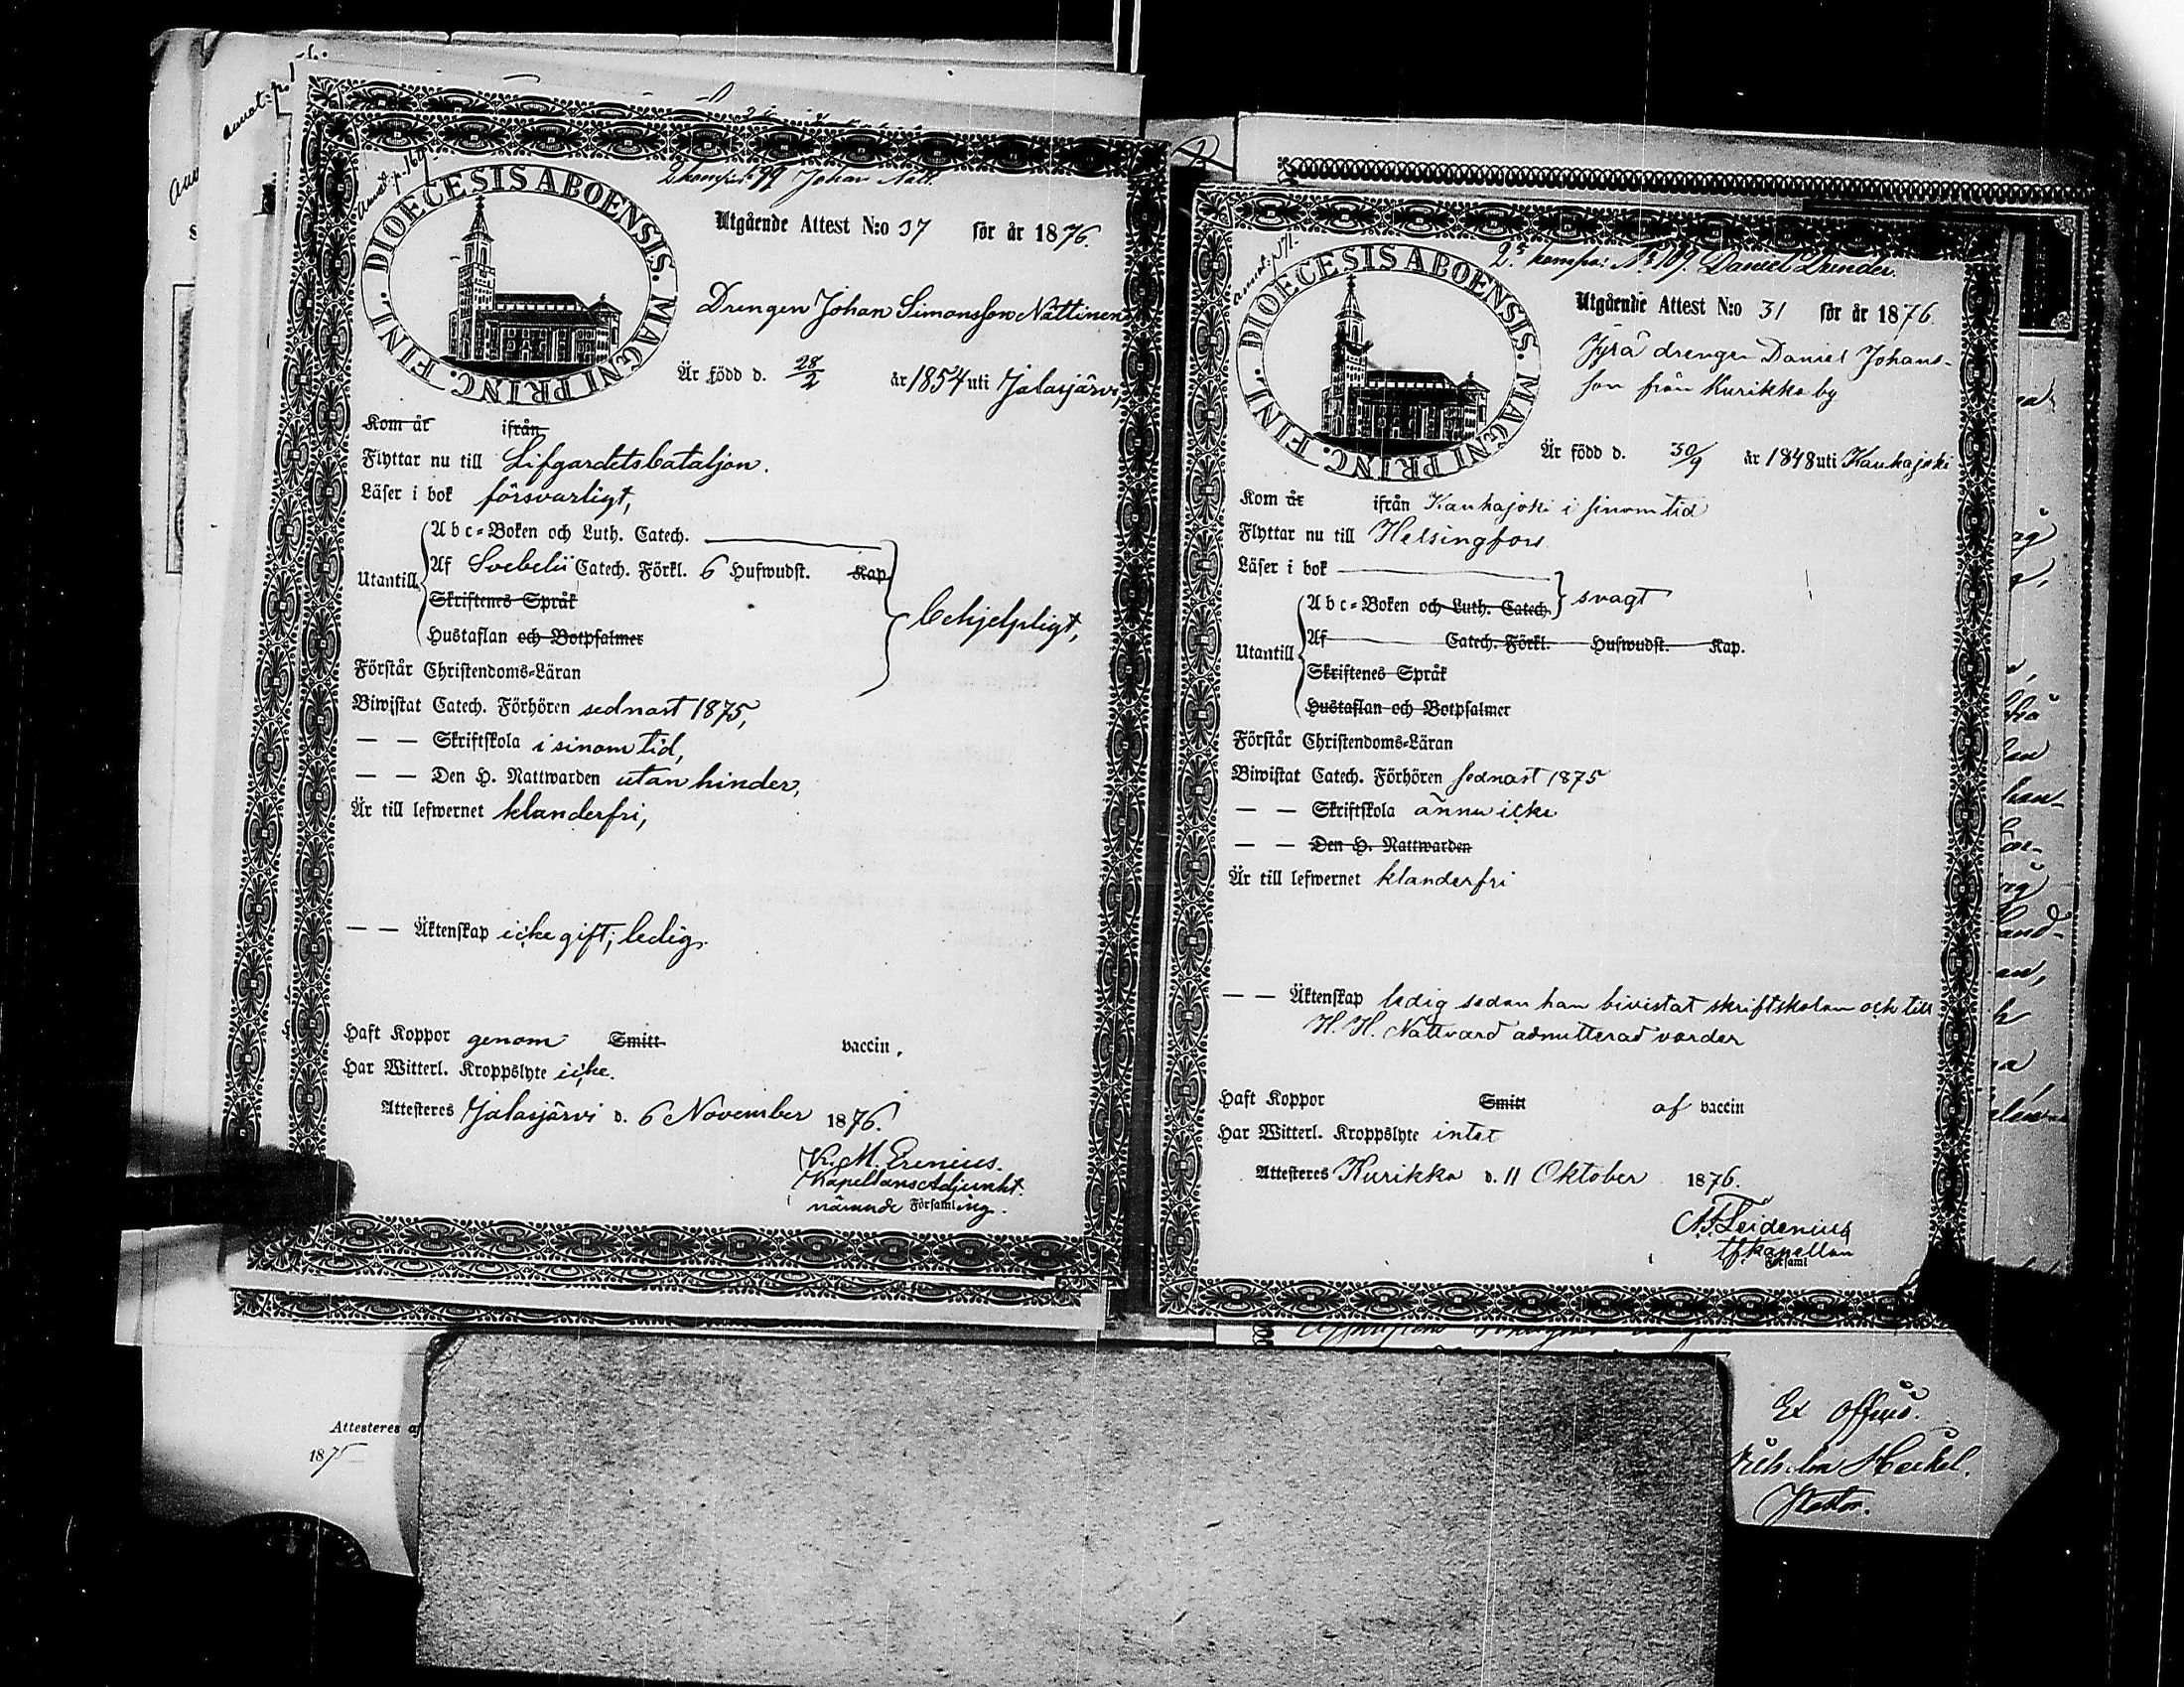 annot: p. 169
2 komp: № 99 Johan Nätt.
DIOECESIS ABOENSIS. MAGNI PRINC. FINL.
Utgående Attest N:o 37 för år 1876.
Drengen Johan Simonsson Nättinen
Är född d. 28/2 år 1854 uti Jalasjärvi,
Kom år ifrån
Flyttar nu till Lifgardetsbataljon.
Läser i bok försvarligt,
Abc-Boken och Luth. Catech.
Utantill Af Svebelii Catech. Förkl. 6 Hufwudst. Kap.
Skriftenes Språk
Hustaflan och Botpsalmer
behjelpligt,
Förstår Christendoms-Läran
Biwistat Catech. Förhören sednast 1875,
— — Skriftskola i sinom tid,
— — Den H. Nattwarden utan hinder,
Är till lefwernet klanderfri,
— — Äktenskap icke gift; ledig.
Haft Koppor genom Smitt vaccin.
Har Witterl. Kroppslyte icke.
Attesteres Jalasjärvi d. 6 November 1876.
K. M. Erenius.
Kapellansadjunkt.
Församling.
Attesteres af
1875
annot: p. 171.
2:s kompa: № 109. Daniel Drunder.
DIOECESIS ABOENSIS. MAGNI PRINC. FINL.
Utgående Attest N:o 31 för år 1876.
Jyrä drengen Daniel Johans-
son från Kurikka by
Är född d. 30/9 år 1848 uti Kauhajoki
Kom år ifrån Kauhajoki i sinom tid
Flyttar nu till Helsingfors
Läser i bok
Abc-Boken och Luth. Catech. svagt
Utantill Af Catech. Förkl. Hufwudst. Kap.
Skriftenes Språk
Hustaflan och Botpsalmer
Förstår Christendoms-Läran
Biwistat Catech. Förhören sednast 1875
— — Skriftskola ännu icke
— — Den H. Nattwarden
Är till lefwernet klanderfri
— — Äktenskap ledig sedan han bivistat skriftskolan och till
H. H. Nattvard admitterad varder
Haft Koppor Smitt af vaccin
Har Witterl. Kroppslyte intet
Attesteres Kurikka d. 11 Oktober 1876.
Leidenius
tf. kapellan
Församl
Ex officio.